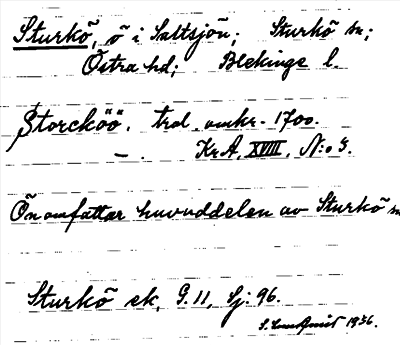 Sturkö, ö i Saltsjön; Sturkö sn;
Östra hd; Blekinge l.
Storcköö. trol. omkr. 1700.
— . Kr.A, XVIII, N:o 3.
Ön omfattar huvuddelen av Sturkö sn
Sturkö ek, G. 11, Sj: 96.
S. Lundquist 1936.